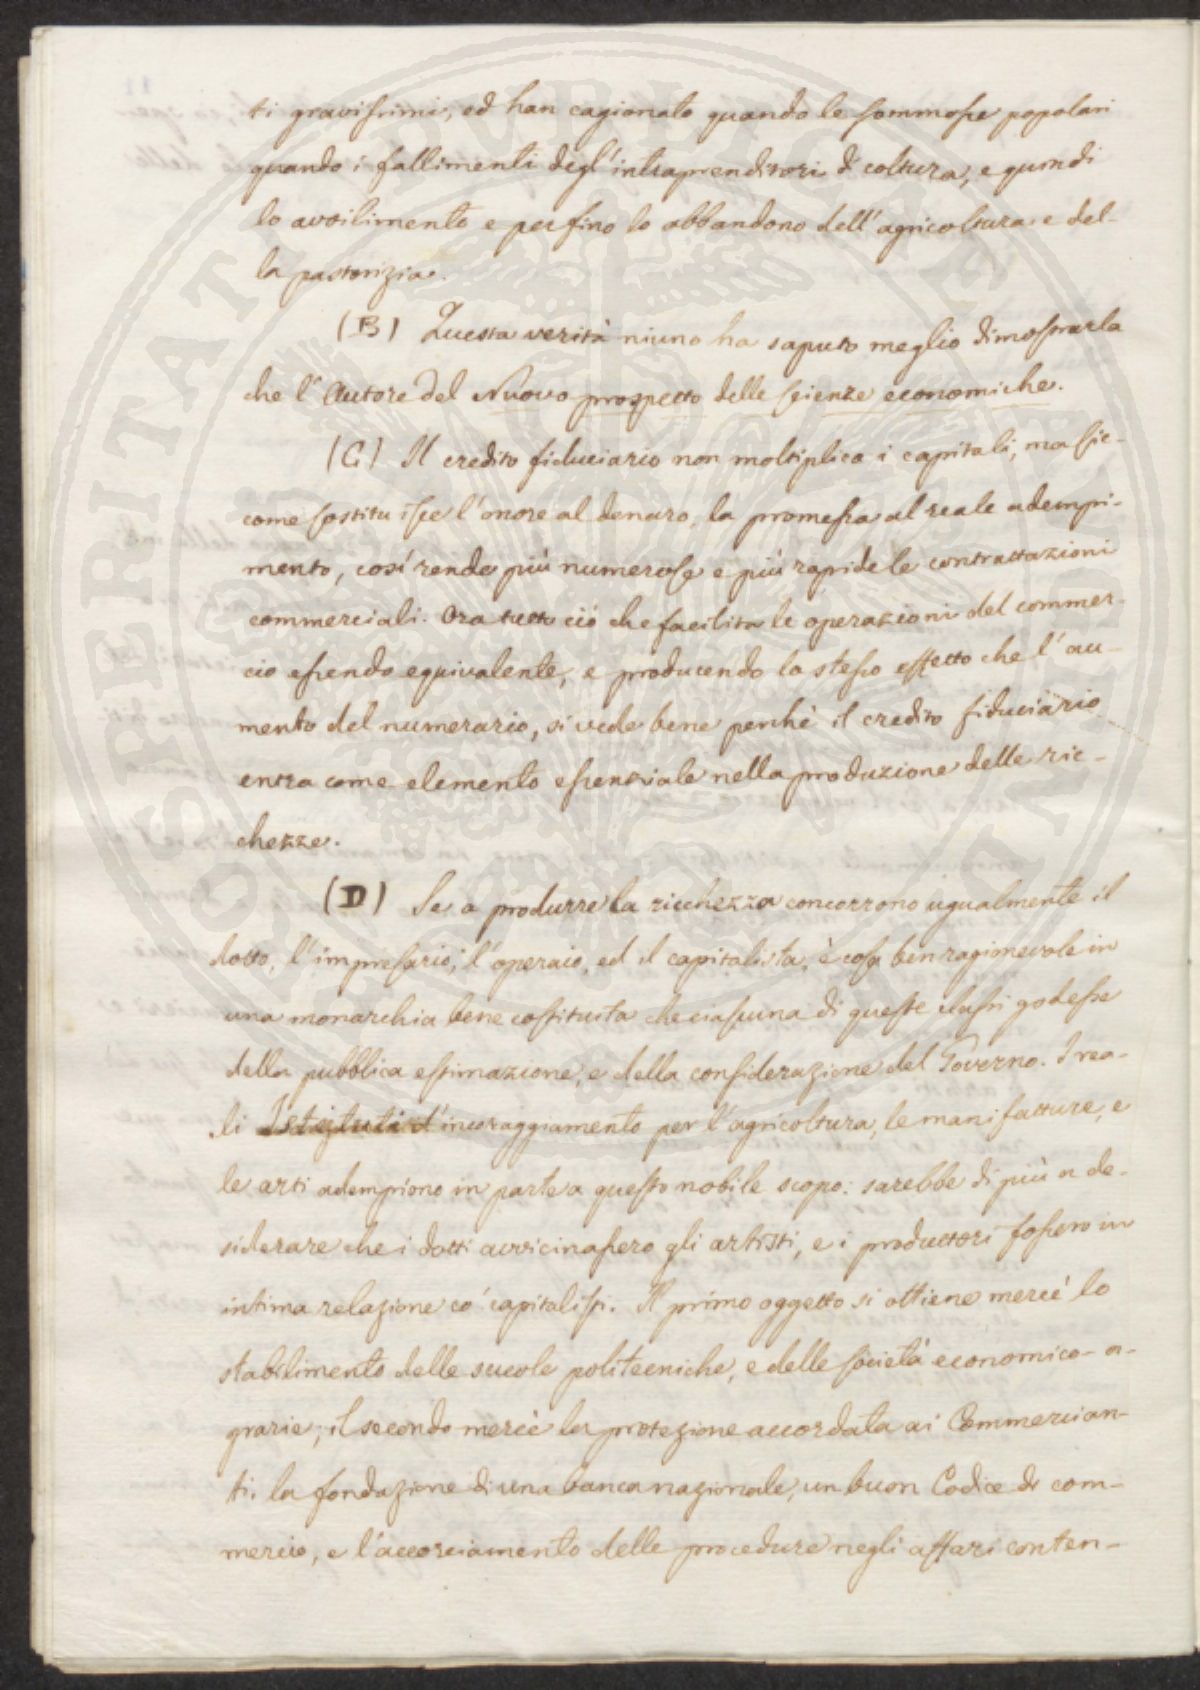 ti gravissimi, ed han cagionato quando le sommosse popolari
quando i fallimenti degl'intraprenditori di coltura, e quindi
lo avvilimento e perfino lo abbandono dell'agricoltura e del-
la pastorizia.
(B) Questa verità niuno ha saputo meglio dimostrarla
che l'Autore del Nuovo prospetto delle scienze economiche.
(C) Il credito fiduciario non moltiplica i capitali, ma sic-
come sostituisce l'onore al denaro, la promessa al reale adempi-
mento, così rende più numerose e più rapide le contrattazioni
commerciali. Ora tutto ciò che facilita le operazioni del commer-
cio essendo equivalente, e producendo lo stesso effetto che l'au-
mento del numerario, si vede bene perchè il credito fiduciario
entra come elemento essenziale nella produzione delle ric-
chezze.
(D) Se a produrre la ricchezza concorrono ugualmente il
dotto, l'impresario, l'operaio, ed il capitalista, è cosa ben ragionevole in
una monarchia bene costituita che ciascuna di queste classi godesse
della pubblica estimazione, e della considerazione del Governo. I rea-
li Istituti d'incoraggiamento per l'agricoltura, le manifatture, e
le arti adempiono in parte a questo nobile scopo: sarebbe di più a de-
siderare che i dotti avvicinassero gli artisti, e i produttori fossero in
intima relazione co' capitalisti. Il primo oggetto si ottiene mercè lo
stabilimento delle scuole politecniche, e delle società economico-a-
grarie; il secondo mercè la protezione accordata ai Commercian-
ti. la fondazione di una banca nazionale, un buon Codice di com-
mercio, e l'accorciamento delle procedure negli affari conten-
PROSPERITATI PVBLICAE VINDVNDA